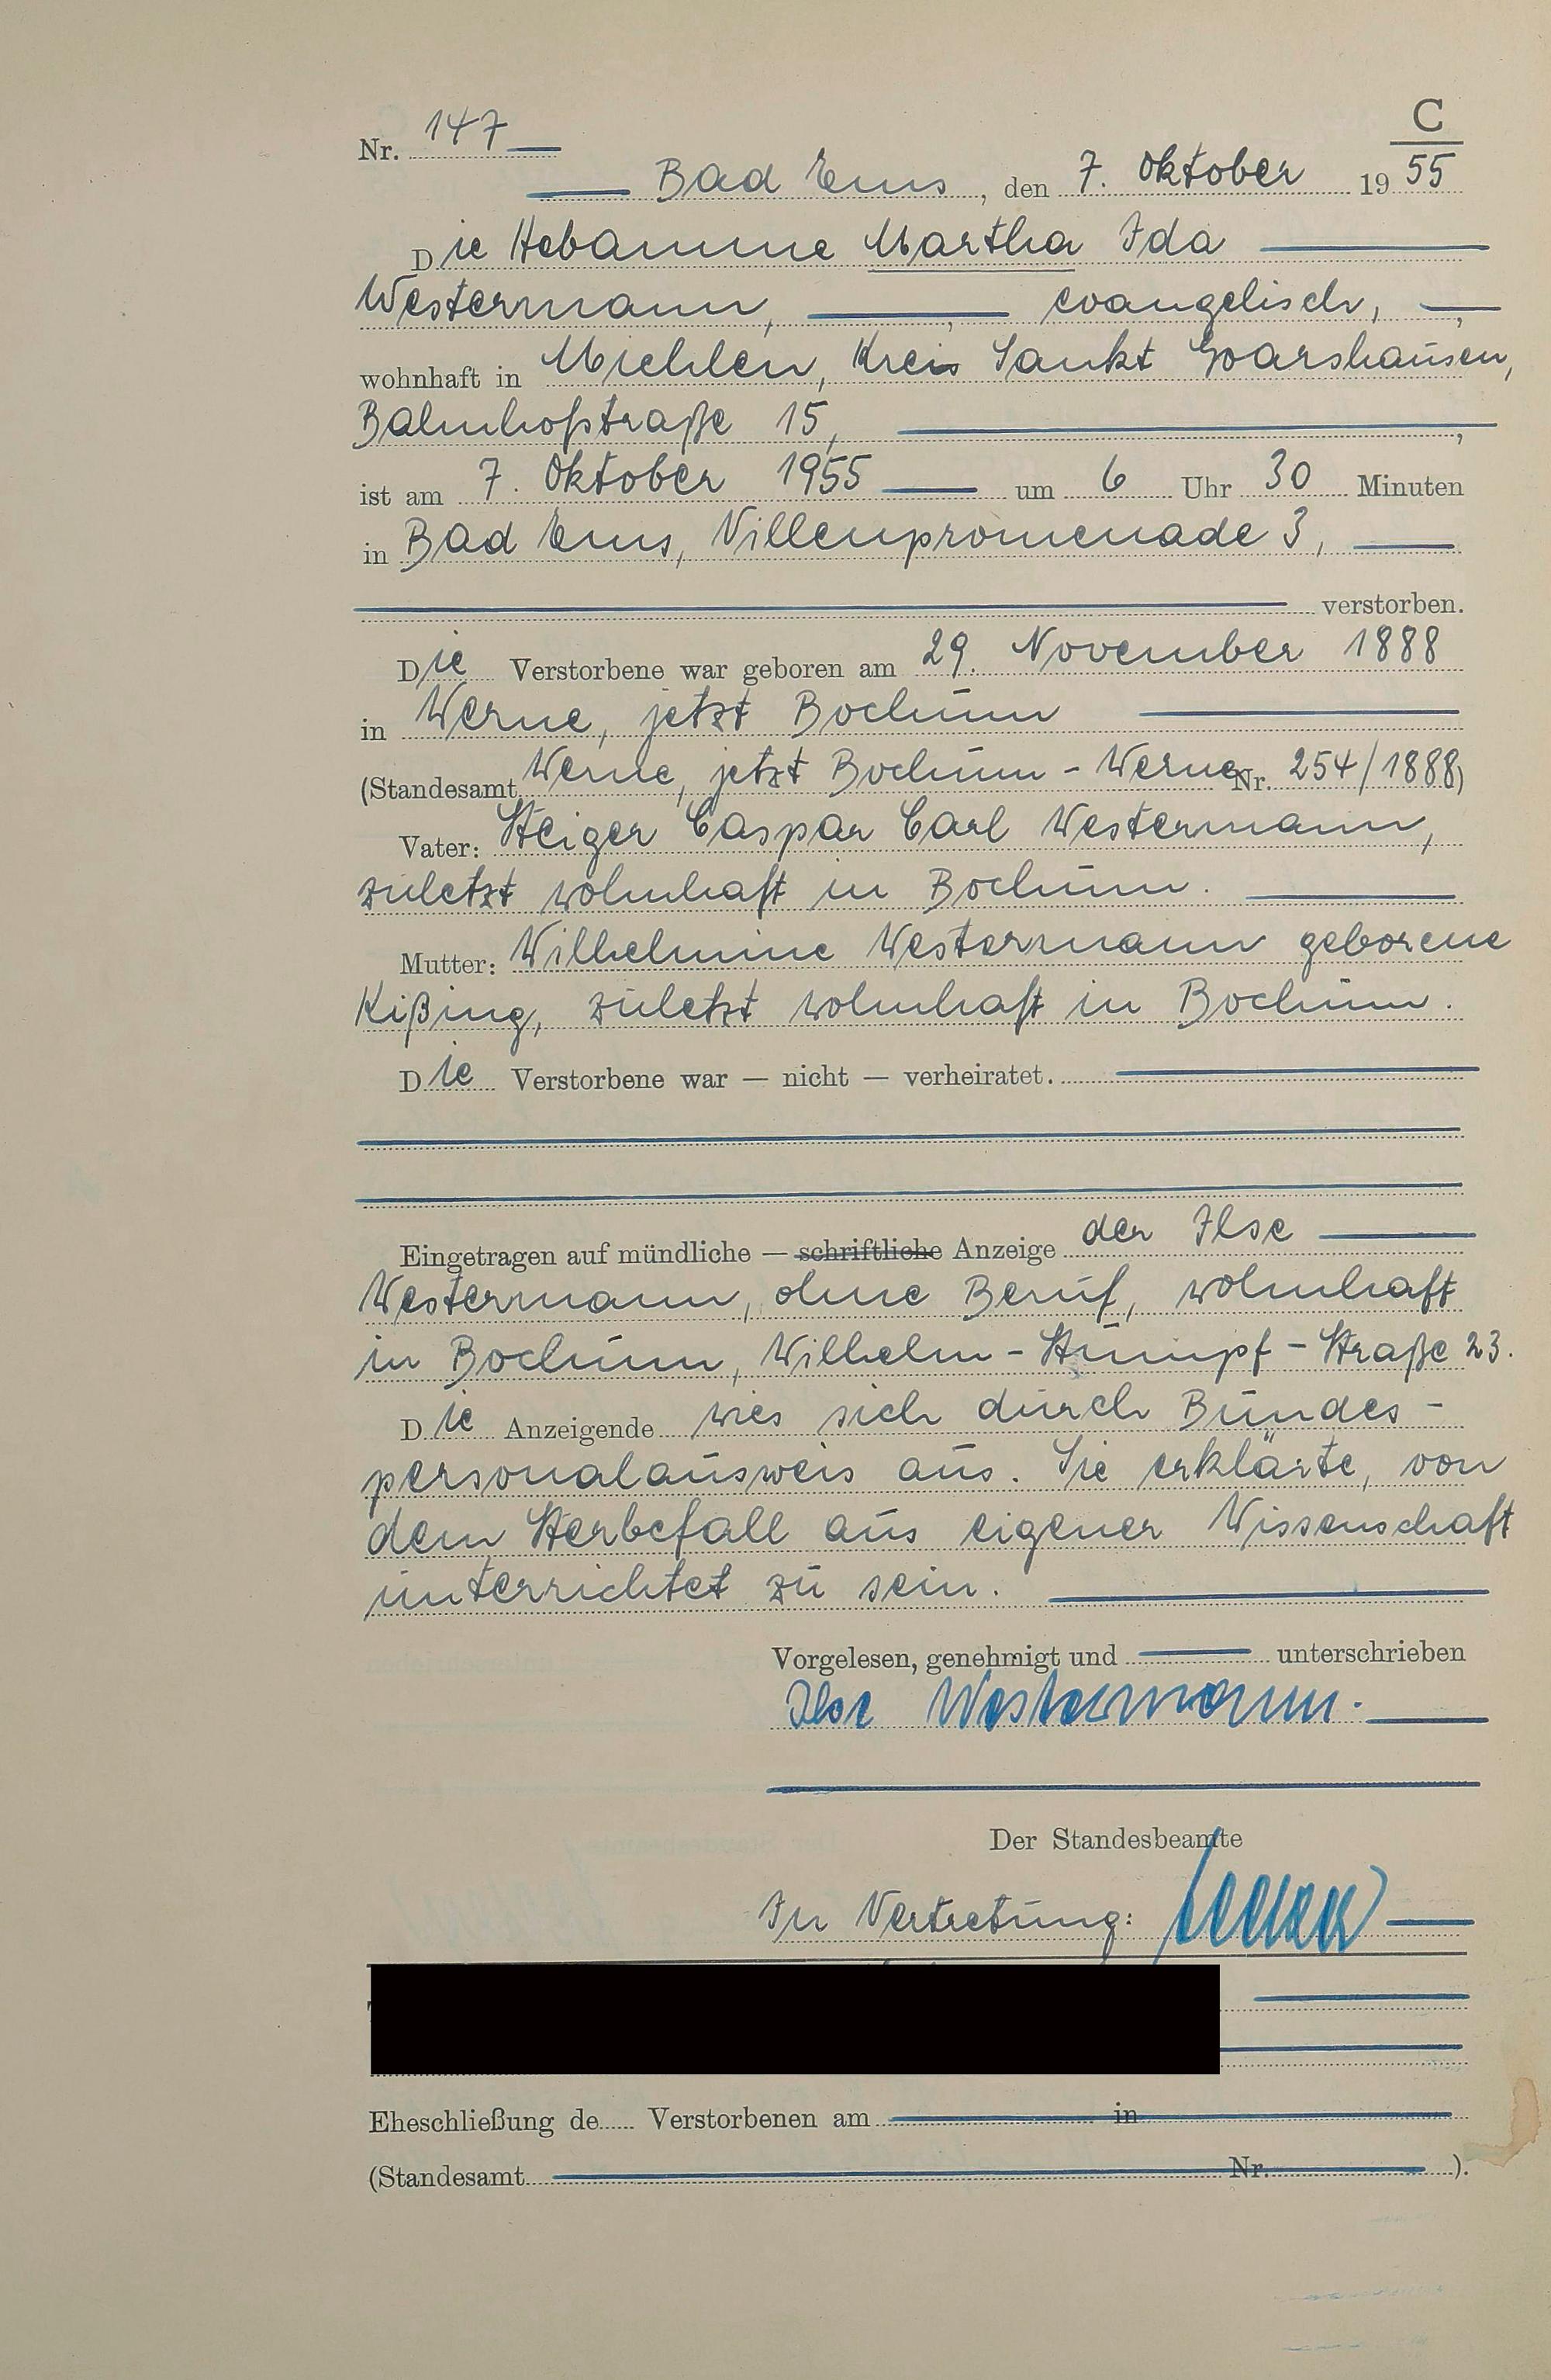 C
Nr. 147
Bad Ems, den 7. Oktober 1955
Die Hebamme Martha Ida
Westermann, , evangelisch, ,
wohnhaft in Miehlen, Kreis Sankt Goarshausen,
Bahnhofstraße 15, ,
ist am 7. Oktober 1955 um 6 Uhr 30 Minuten
in Bad Ems, Villenpromenade 3,
verstorben.
Die Verstorbene war geboren am 29. November 1888
in Werne, jetzt Bochum
(Standesamt Werne, jetzt Bochum - Werne Nr. 254/1888)
Vater: Steiger Caspar Carl Westermann,
zuletzt wohnhaft in Bochum.
Mutter: Wilhelmine Westermann geborene
Kißing, zuletzt wohnhaft in Bochum.
Die Verstorbene war — nicht — verheiratet.
Eingetragen auf mündliche — schriftliche Anzeige der Ilse
Westermann, ohne Beruf, wohnhaft
in Bochum, Wilhelm - Stumpf - Straße 23.
Die Anzeigende wies sich durch Bundes-
personalausweis aus. Sie erklärte, von
dem Sterbefall aus eigener Wissenschaft
unterrichtet zu sein.
Vorgelesen, genehmigt und unterschrieben
Ilse Westermann.
Der Standesbeamte
In Vertretung:
Eheschließung de Verstorbenen am in
(Standesamt Nr. ).